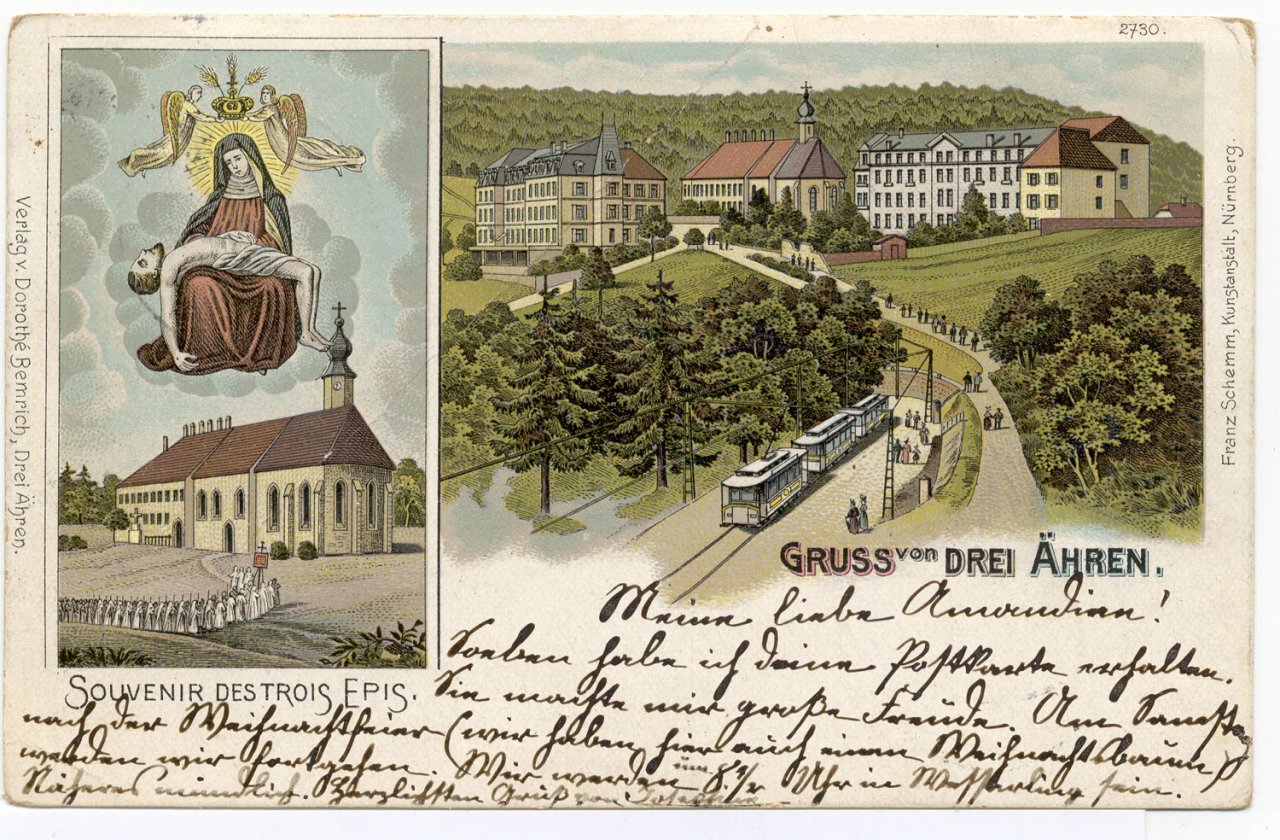 2730.
Verlag v. Dorothé Bemrich, Drei Ähren.
Franz Schemm, Kunstanstalt, Nürnberg.
GRUSS von DREI ÄHREN.
SOUVENIR DES TROIS EPIS.
Meine liebe Amandine!
Soeben habe ich deine Postkarte erhalten.
Sie machte mir große Freude. Am Samstag
nach der Weihnachtfeier (wir haben hier auch einen Weihnachtsbaum)
werden wir fortgehen. Wir werden um 8 1/2 Uhr in Wesserling sein.
Näheres mündlich. Herzlichsten Gruß von Josephine